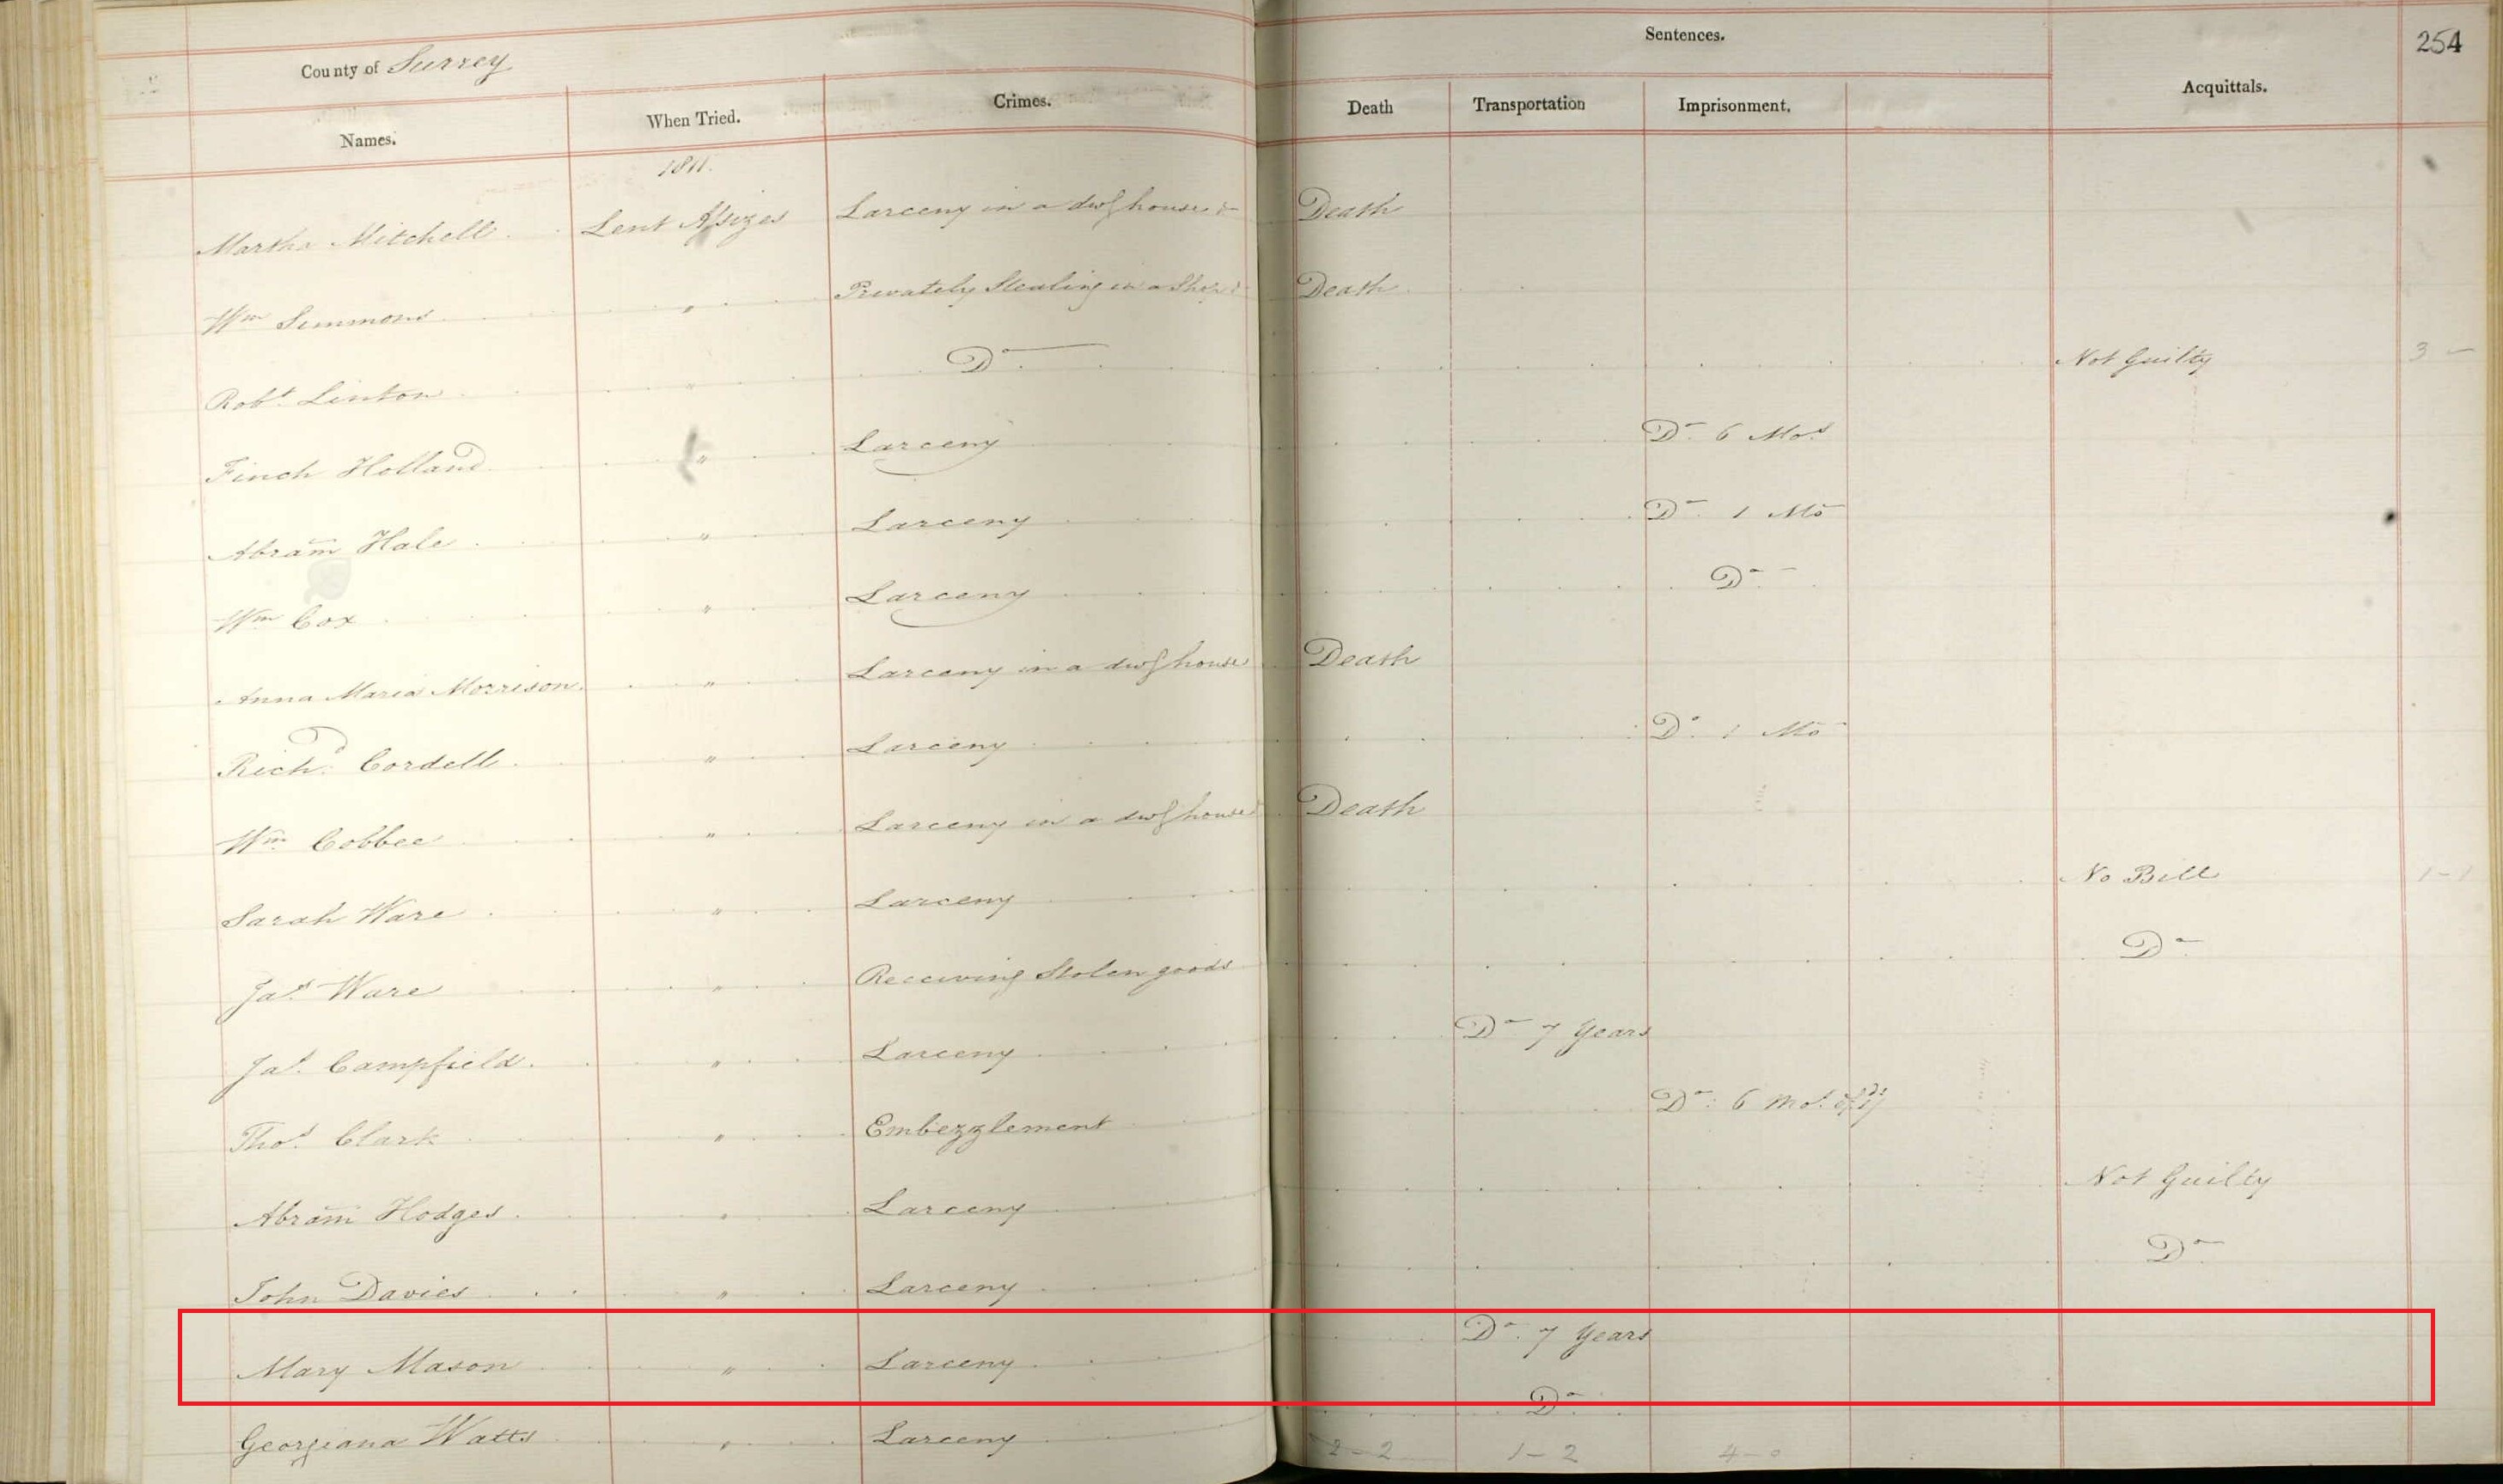 County of Surrey Sentences. 254
Names. When Tried. Crimes. Death Transportation Imprisonment. Acquittals.
1811.
Martha Mitchell Lent Assizes Larceny in a dwg house & Death
Wm Simmons " Privately Stealing in a Shop Death
Robt. Linton " Do. Not Guilty 3 -
Finch Holland " Larceny Do. 6 Mos.
Abram Hale " Larceny Do. 1 Mo
Wm Cox " Larceny Do
Anna Maria Morrison " Larceny in a dwg house Death
Richd. Cordell " Larceny Do. 1 Mo
Wm. Cobbee " Larceny in a dwg house Death
Sarah Ware " Larceny No Bill 1 - 1
Jas. Ware " Receiving Stolen goods Do.
Jas. Campfield " Larceny Do 7 Years
Thos. Clark " Embezzlement Do. 6 Mos.
Abram Hodges " Larceny Not Guilty
John Davies " Larceny Do
Mary Mason " Larceny Do. 7 Years
Georgiana Watts " Larceny Do.
2 - 2 1 - 2 4 - 0